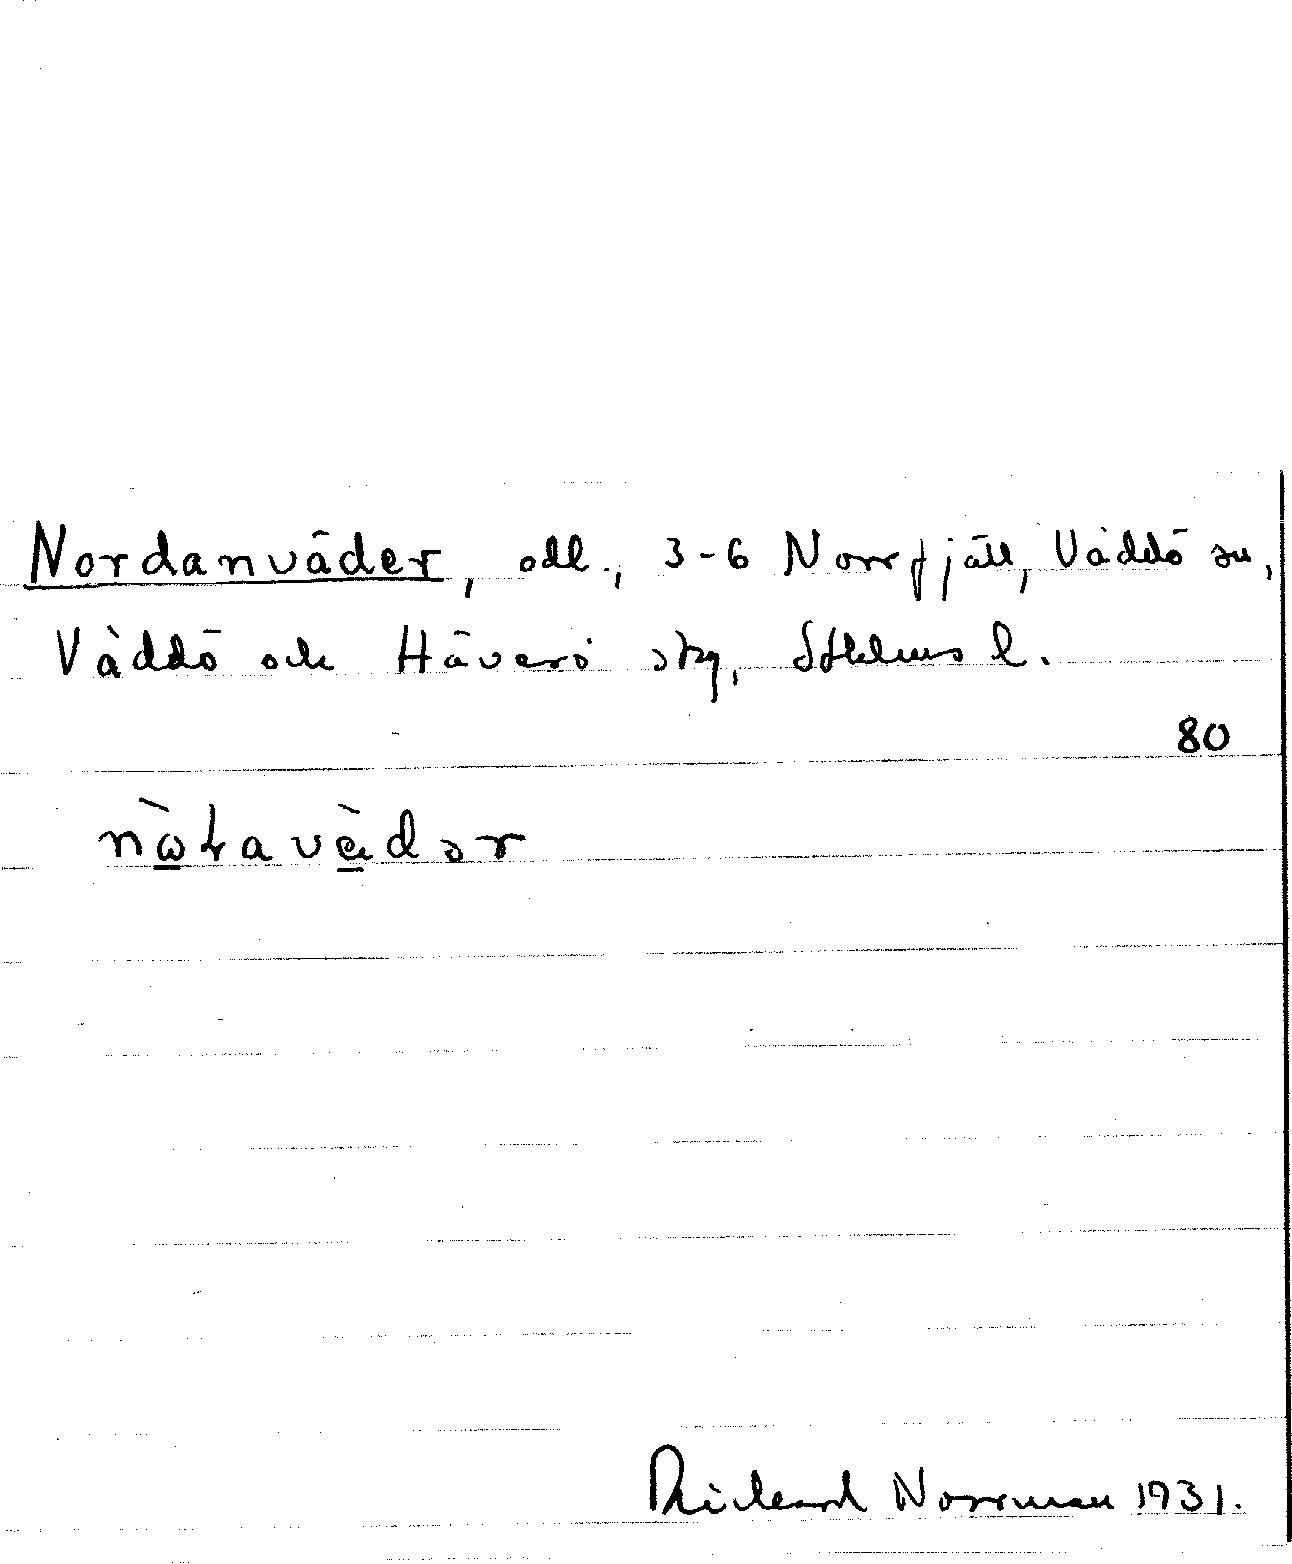 Nordanväder, odl., 3-6 Norrfjäll, Väddö sn,
Väddö och Häverö skg, Sthlms l.
80
Rickard Norrman 1931.